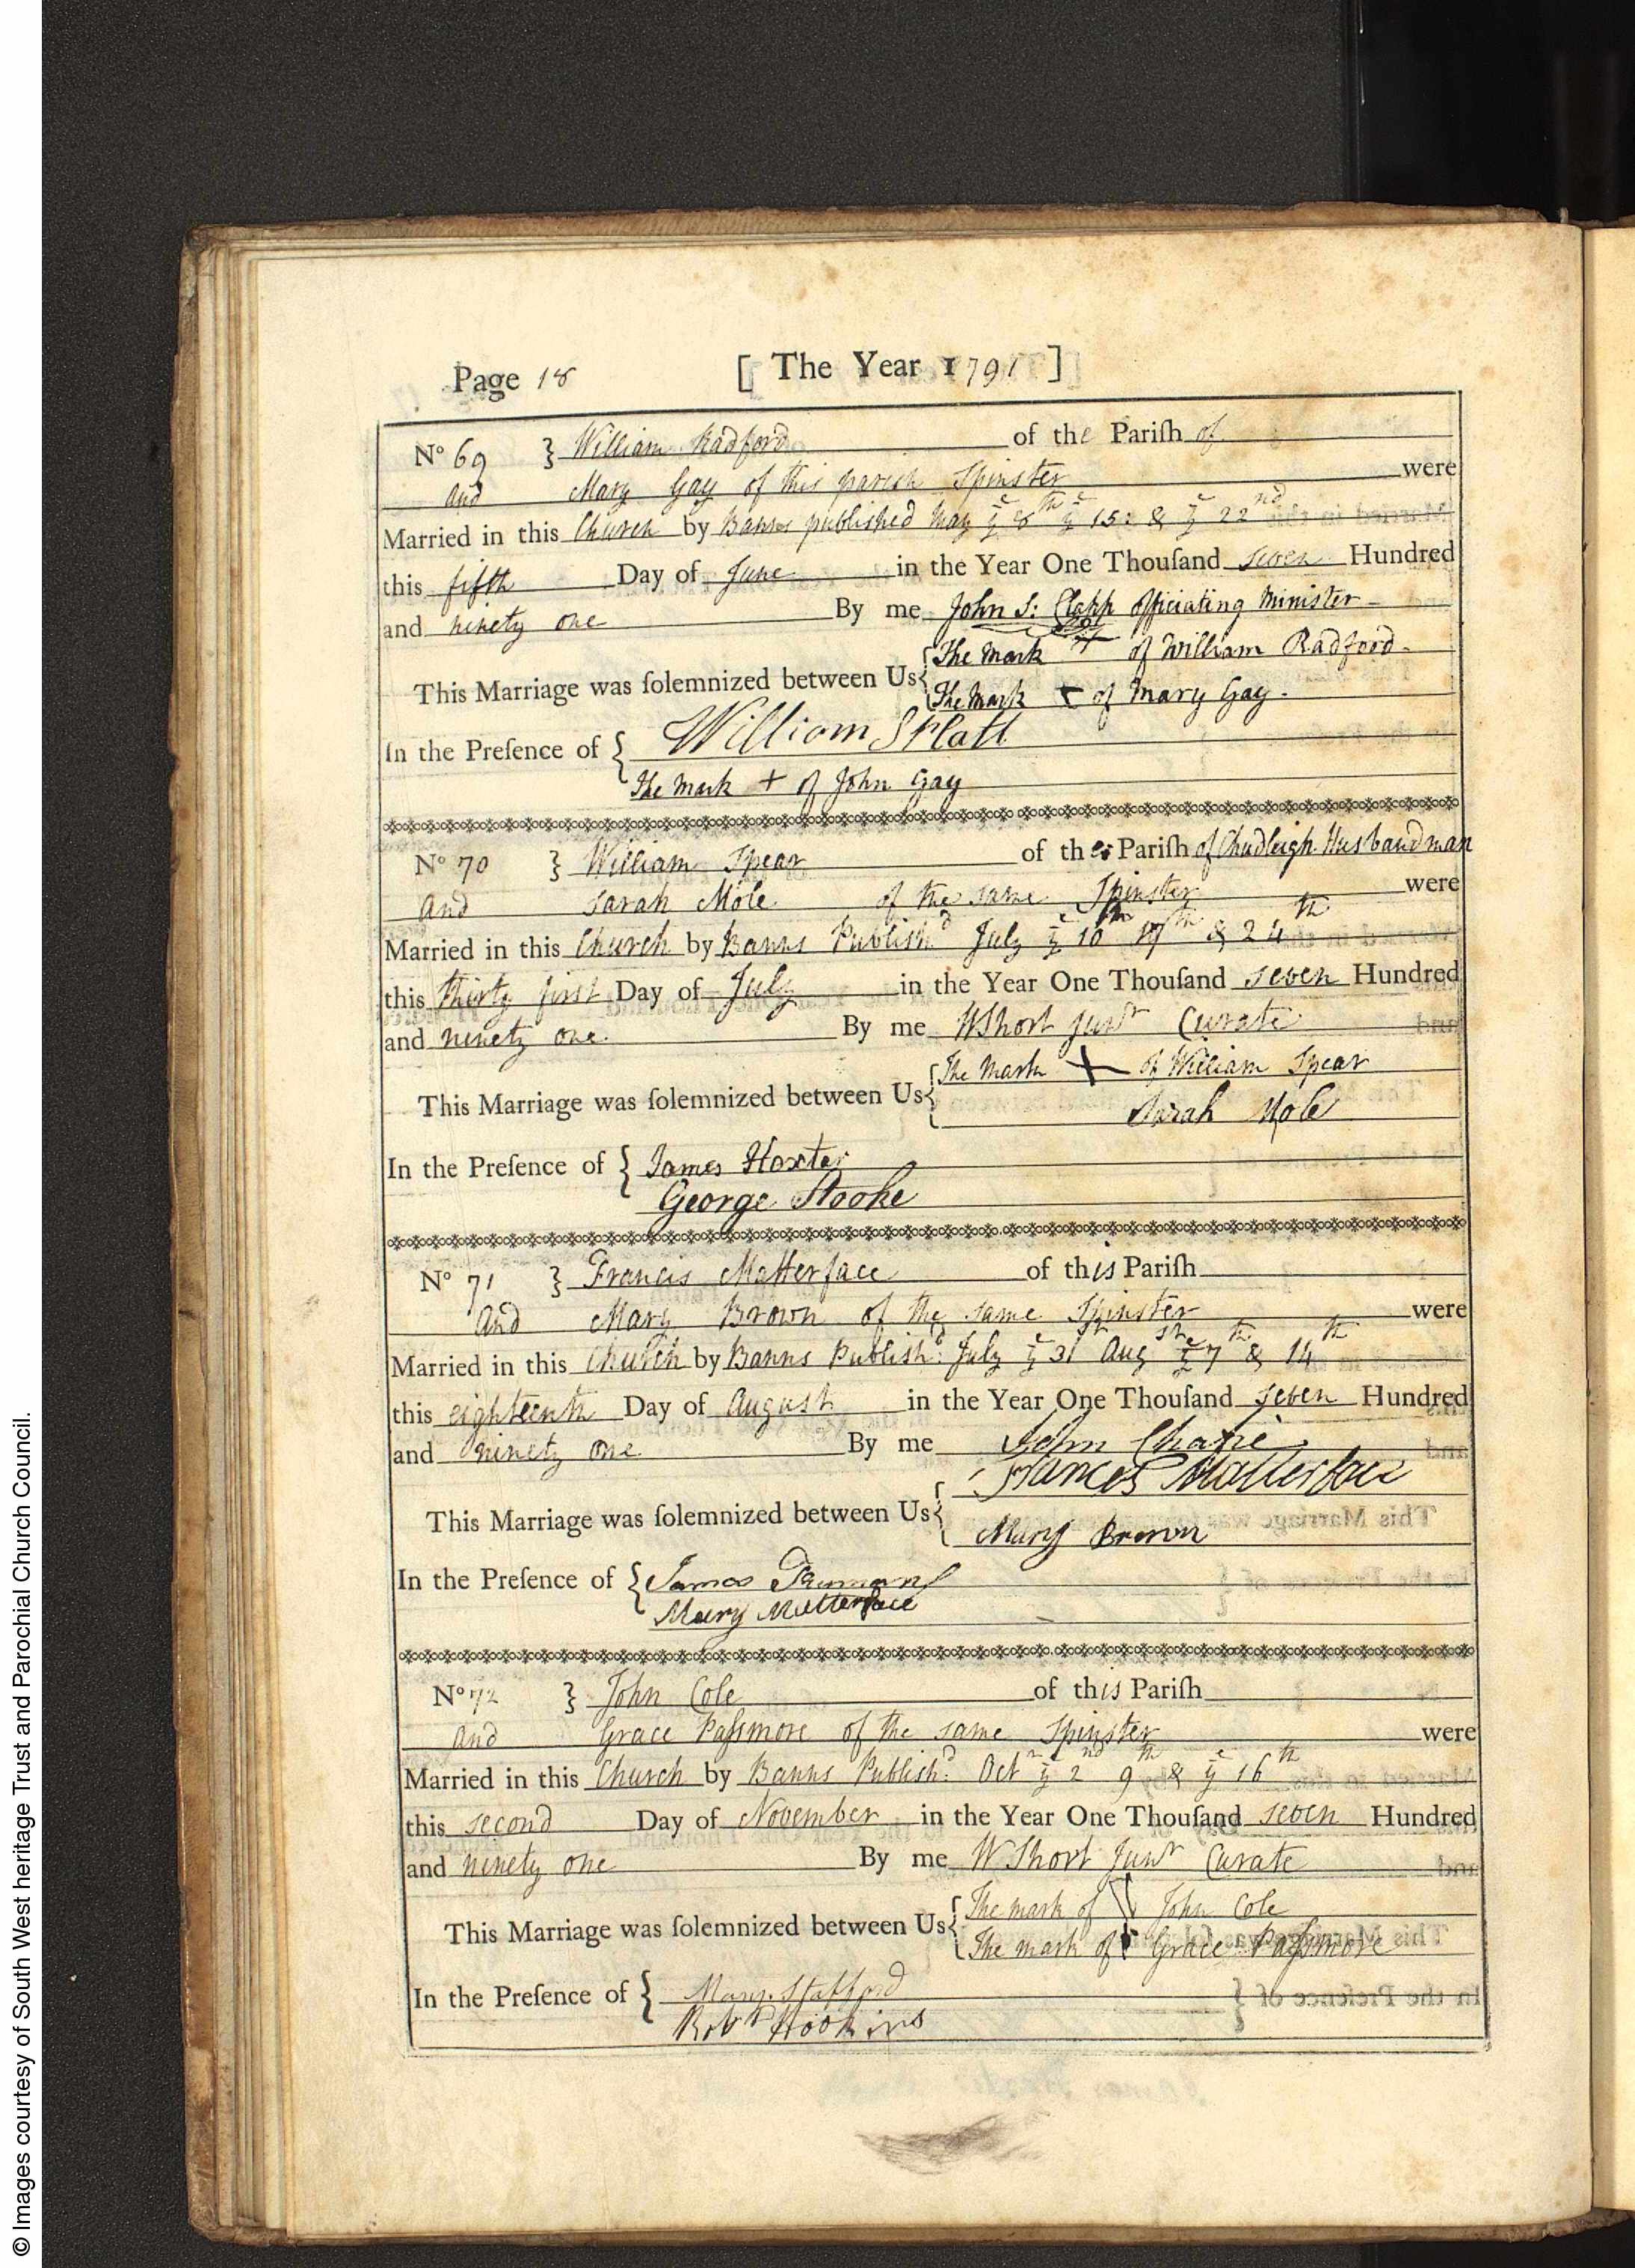 Page 18 [ The Year 1791 ]
No 69 } William Radford of the Pariſh of
and Mary Gay of this parish Spinster were
Married in this Church by Banns published May ye 8th ye 15: & ye 22nd
this fifth Day of June in the Year One Thouſand seven Hundred
and ninety one By me John S: Clapp Officiating Minister
This Marriage was ſolemnized between Us { The Mark + of William Radford
The Mark + of Mary Gay
In the Preſence of { William Splatt
The Mark + of John Gay
No 70 } William Spear of the Pariſh of Chudleigh Husbandman
and Sarah Mole of the same Spinster were
Married in this Church by Banns Publish'd July ye 10th 17th & 24th
this thirty first Day of July in the Year One Thouſand seven Hundred
and ninety one. By me WShort Junr Curate
This Marriage was ſolemnized between Us { The Mark + of William Spear
Sarah Mole
In the Preſence of { James Hoxter
George Stooke
No 71 } Francis Matterface of this Pariſh
And Mary Brown of the same Spinster were
Married in this Church by Banns Publish'd July ye 31st Aug ye 7th & 14th
this eighteenth Day of August in the Year One Thouſand seven Hundred
and ninety one By me John
Frances Matterface
This Marriage was ſolemnized between Us {
Mary Brown
In the Preſence of { James
Mary Matterface
No 72 } John Cole of this Pariſh
and Grace Paſsmore of the same Spinster were
Married in this Church by Banns Publish'd Octr ye 2nd 9th & ye 16th
this second Day of November in the Year One Thouſand seven Hundred
and ninety one By me W Short Junr Curate
This Marriage was ſolemnized between Us { The mark of John Cole
The mark of Grace Paſsmore
In the Preſence of { Mary Stafford
Robt Hookins
© Images courtesy of South West heritage Trust and Parochial Church Council.